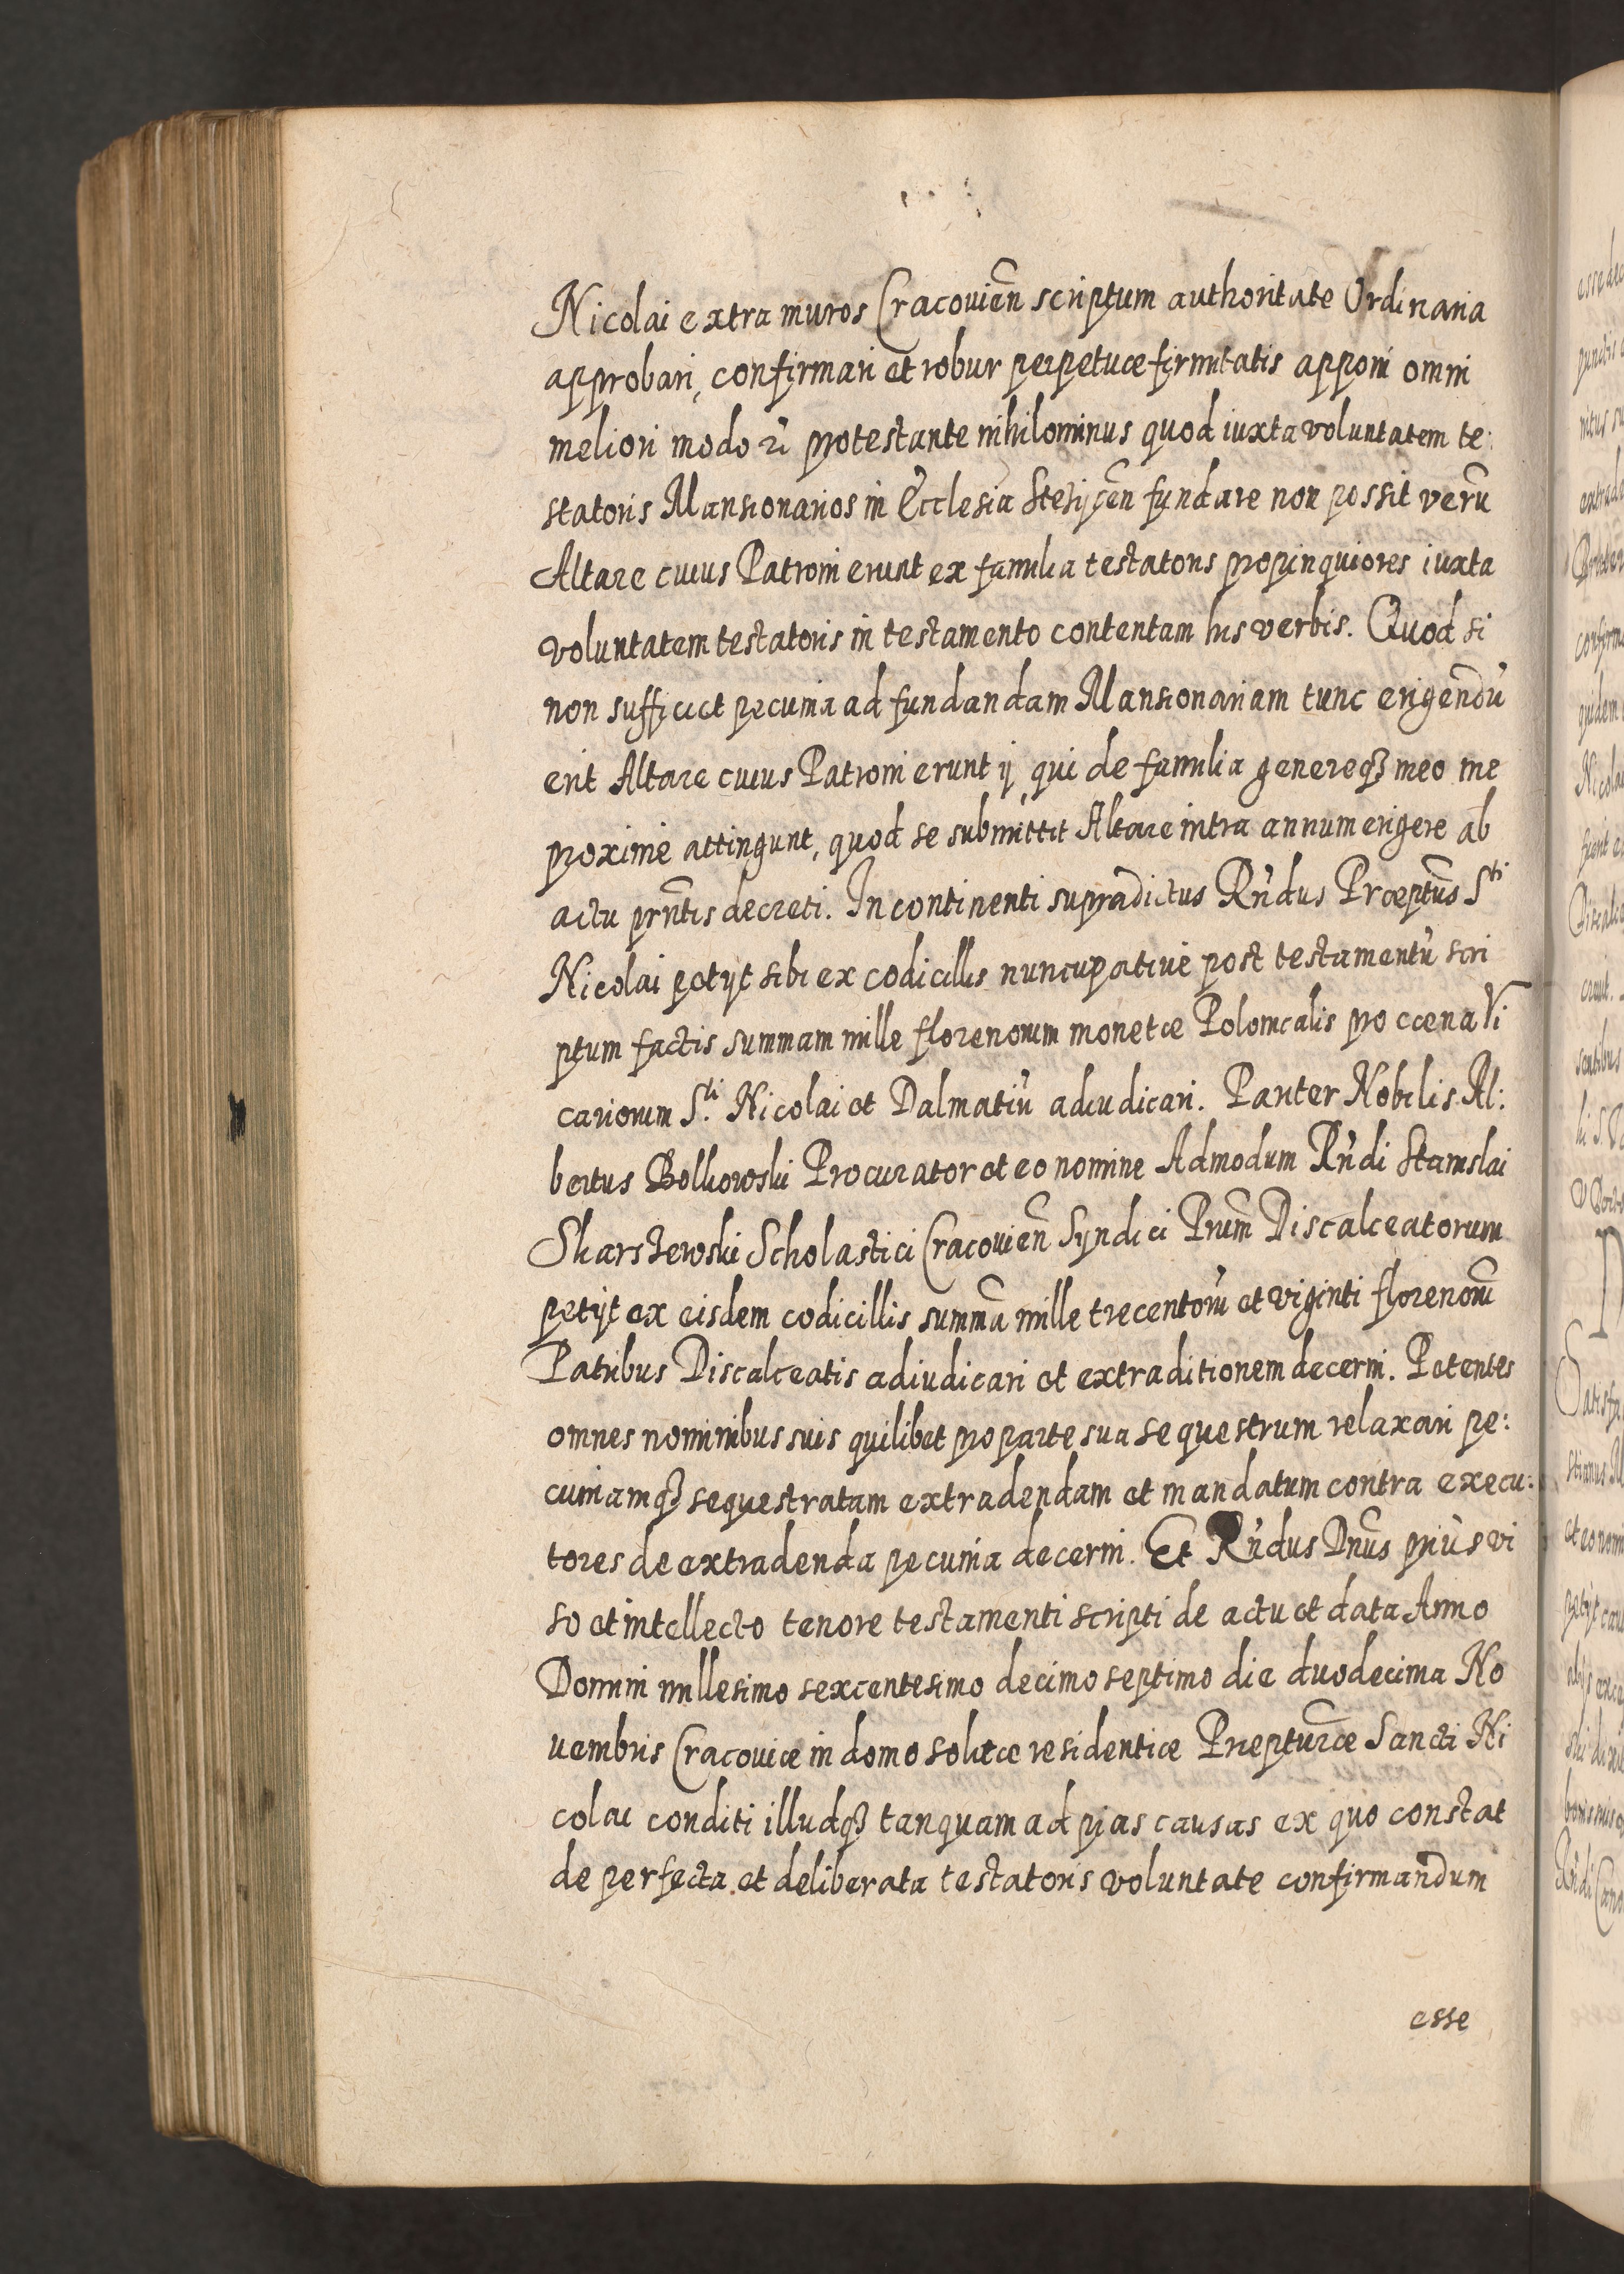 Nicolai extra muros Cracovien̄ scriptum authoritate Ordinaria
approbari, confirmari et robur perpetuæ firmitatis apponi omni
meliori modo protestante nihilominus quod iuxta voluntatem te:
statoris Mansionarios in Ecclesia fundare non possit verū
Altare cuius Patroni erunt ex familia testatoris propinquiores iuxta
voluntatem testatoris in testamento contentam his verbis. Quod si
non sufficiet pecunia ad fundandam Mansionariam tunc erigendū
erit Altare cuius Patroni erunt ij qui de familia genereqȝ meo me
proximè attingunt, quod se submittit Altare intra annum erigere ab
actu prn̄tis decreti. In continenti supradictus Rn̄dus Præptūs Sti
Nicolai petijt sibi ex codicillis nuncupativè post testamentū scri
ptum factis summam mille florenorum monetæ Polonicalis pro cœna Vi
cariorum Sti. Nicolai et Dalmatiū adiudicari. Pariter Nobilis Al:
bertus Bolkowski Procurator et eo nomine Admodum Rn̄di Stanislai
Skarszewski Scholastici Cracovien̄ Syndici Prum̄ Discalceatorum
petijt ex eisdem codicillis summā mille trecentorū et viginti florenorū
Patribus Discalceatis adiudicari et extraditionem decerni. Petentes
omnes nominibus suis quilibet pro parte sua sequestrum relaxari pe:
cuniamqȝ sequestratam extradendam et mandatum contra execu:
tores de extradenda pecunia decerni. Et Rn̄dus Dnūs priùs vi
so et intellecto tenore testamenti scripti de actu et data Anno
Domini millesimo sexcentesimo decimo septimo die duodecima No
uembris Cracoviæ in domo solitæ residentiæ Præpturæ Sancti Ni
colai conditi illudqȝ tanquam ad pias causas ex quo constat
de perfecta et deliberata testatoris voluntate confirmandum
esse